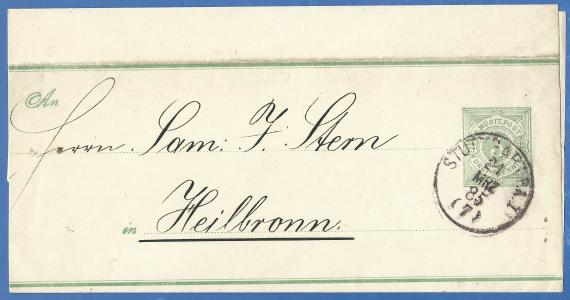 An
Herrn Sam: J. Stern
in Heilbronn.
WÜRTT. POST
STUTTGART P.A.1
21
MRZ
85
(7)